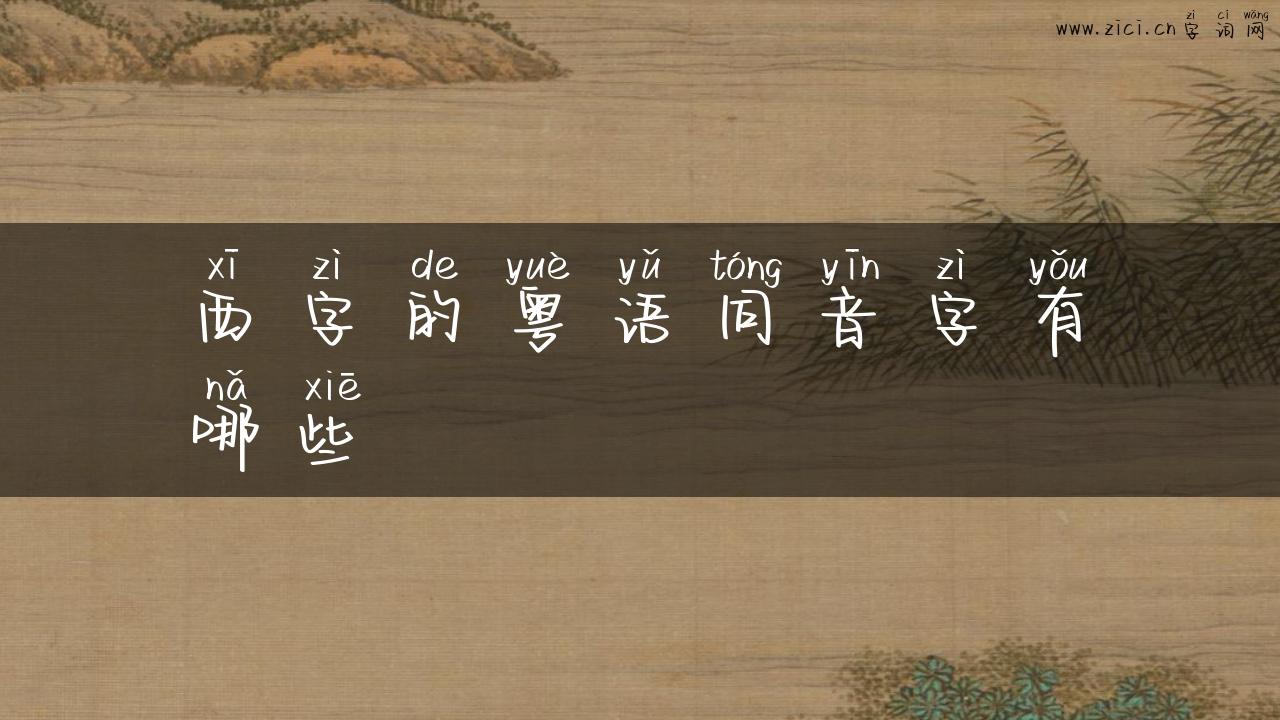 zì cí wǎng
www.zici.cn 字 词 网
xī zì de yuè yǔ tóng yīn zì yǒu
西 字 的 粤 语 同 音 字 有
nǎ xiē
哪 些